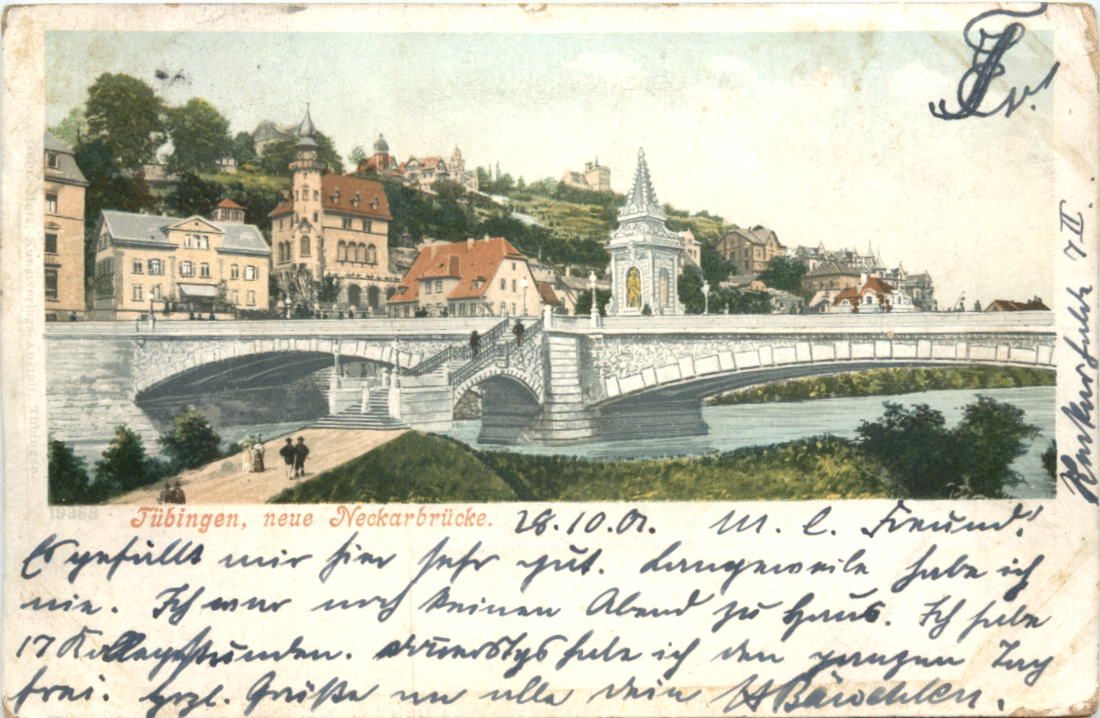 Tübingen, neue Neckarbrücke.
28.10.01. M. l. Freund!
Es gefällt mir hier sehr gut. Langeweile habe ich
nie. Ich war noch keinen Abend zu Haus. Ich habe
17 Kollegstunden. habe ich den ganzen Tag
frei. Hrzl. Grüße an alle dein
19368